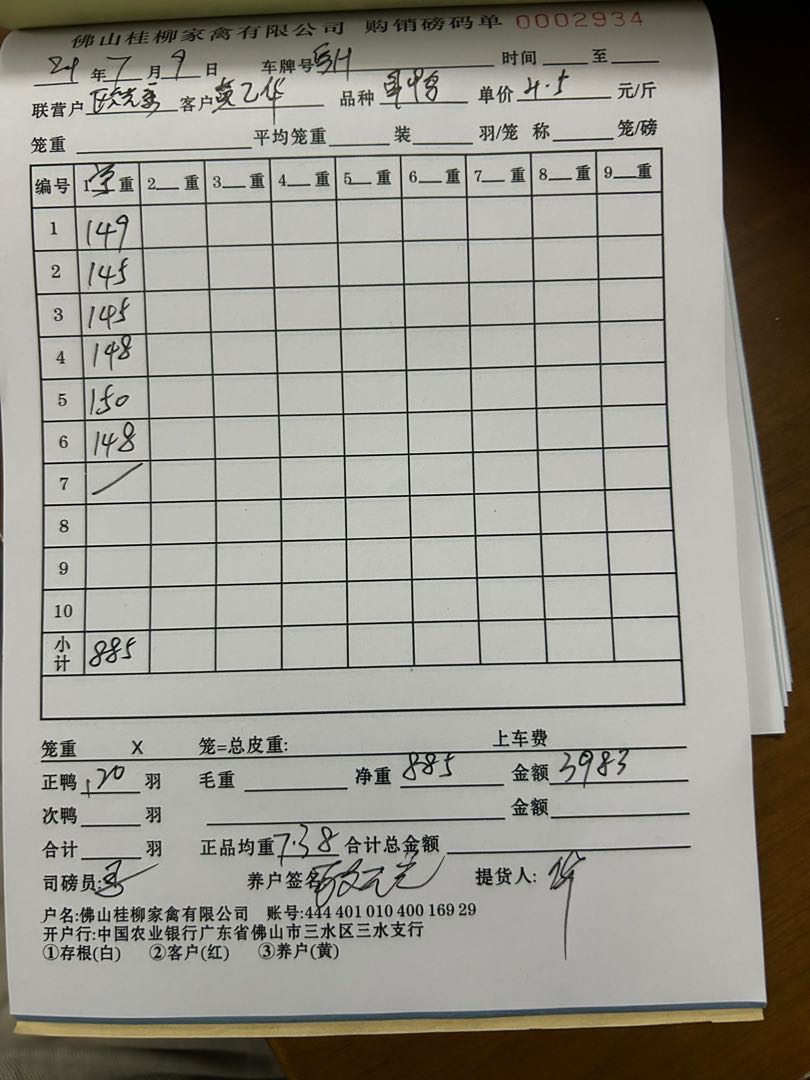 佛山桂柳家禽有限公司 购销磅码单 0002934
24 年 7 月 9 日 车牌号 时间 至
联营户 客户 品种 单价 4.5 元/斤
笼重 平均笼重 装 羽/笼 称 笼/磅
编号 1 重 2 重 3 重 4 重 5 重 6 重 7 重 8 重 9 重
1 149
2 145
3 145
4 148
5 150
6 148
7 /
8
9
10
小计 885
笼重 X 笼=总皮重: 上车费
正鸭 120 羽 毛重 净重 885 金额 3983
次鸭 羽 金额
合计 羽 正品均重 7.38 合计总金额
司磅员: 养户签名 提货人: 华
户名:佛山桂柳家禽有限公司 账号:444 401 010 400 169 29
开户行:中国农业银行广东省佛山市三水区三水支行
①存根(白) ②客户(红) ③养户(黄)